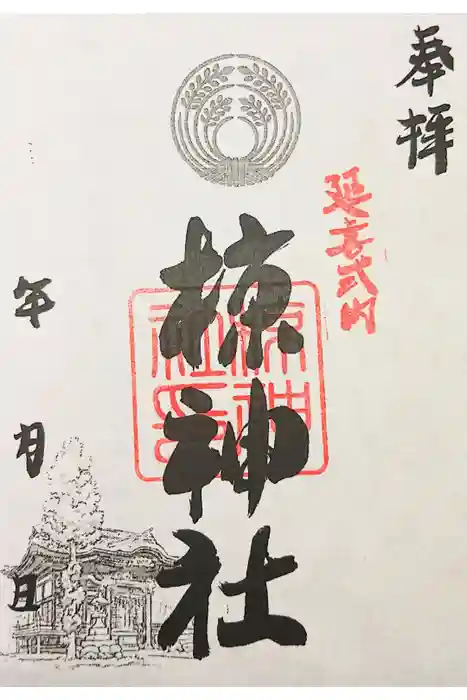 奉拝
延喜式内
椋神社
椋神
社印
年月日